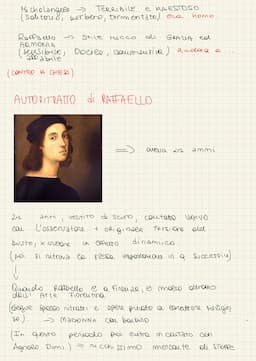 Michelangelo → TERRIBILE e MAESTOSO
(solitario, superbo, tormentato) era homo
Raffaello → STILE ricco di GRAZIA ed
ARMONIA
(sensibile, DOCILE, amava a
affabile
(CONTRO LA CHIESA)
AUTORITRATTO di RAFFAELLO
⇒ aveva 23 anni
23 anni, vestito di scuro, contatto visivo
con l'osservatore + originale torsione del
busto, x creare un effetto dinamico.
(poi si ritrarrà con in successivi)
Quando Raffaello è a Firenze, è molto attratto
dall' Arte Fiorentina
(esegue spesso ritratti e opere private a carattere religio
so) → MADONNA con bambino
(In questo periodo poi entra in contatto con
Agnolo Doni) → ricchissimo mercante di STOFFE